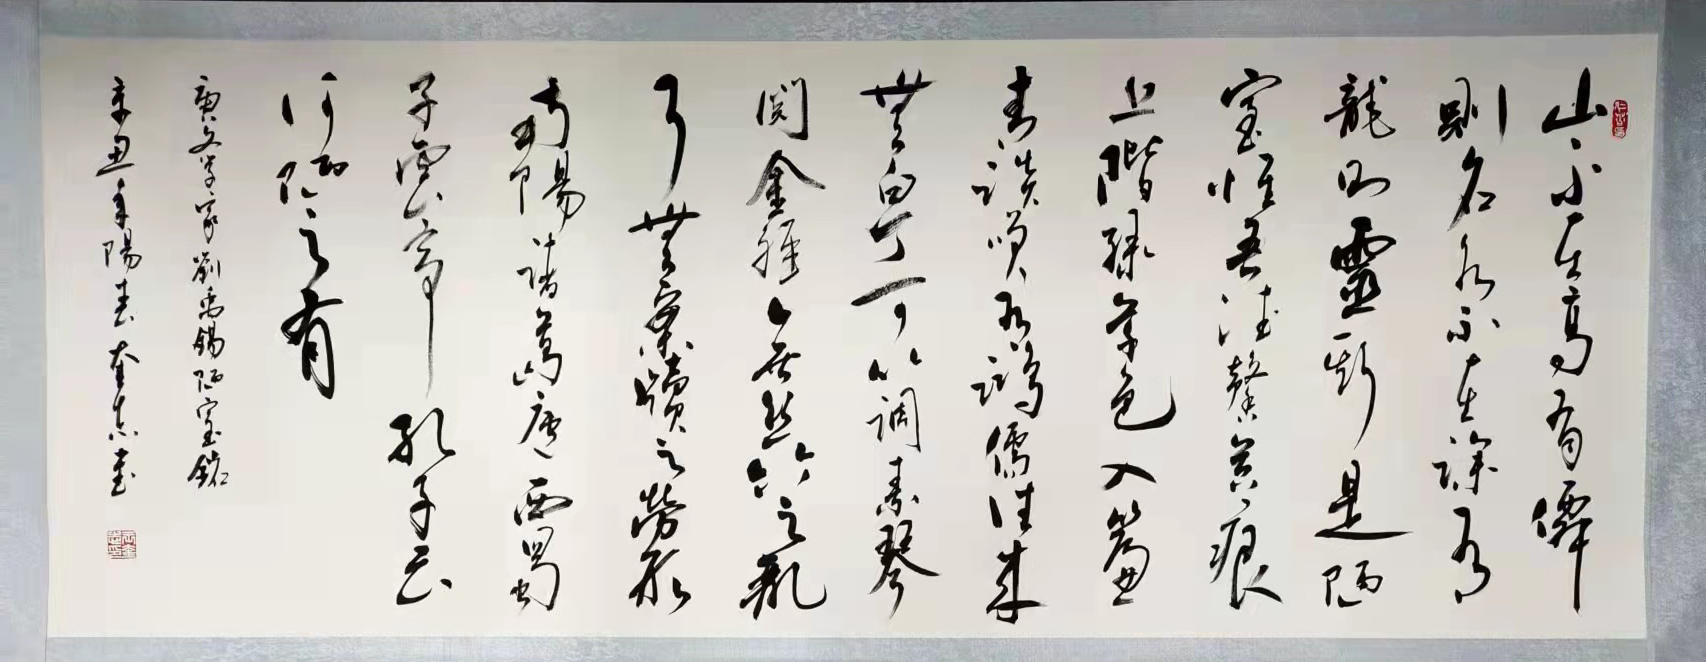 山不在高有僊
則名水不在深有
龍則靈斯是陋
室惟吾德馨苔痕
上階綠草色入簾
青談笑有鴻儒往來
無白丁可以調素琴
閱金經無絲竹之亂
耳無案牘之勞形
南陽諸葛廬西蜀
子雲亭孔子云
何陋之有
唐文学家劉禹錫陋室銘
辛丑年陽春奎志書